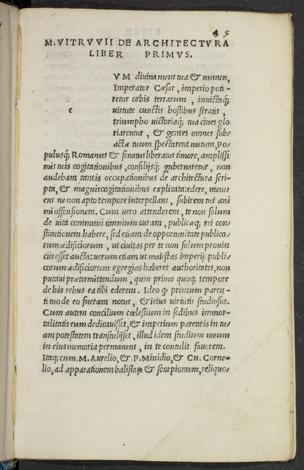 M. VITRVVII DE ARCHITECTVRA
LIBER PRIMVS.
c
VM diuina mens tua & numen,
Imperator Cæsar, imperio poti-
retur orbis terrarum, inuictaq́;
uirtute cunctis hostibus stratis,
triumpho uictoriaq́; tua ciues glo
riarentur, & gentes omnes sub-
actæ tuum spectarent nutum, Po-
pulusq́; Romanus & senatus liberatus timore, amplissi
mis tuis cogitationibus, consilijsq́; gubernaretur, non
audebam tantis occupationibus de architectura scri-
pta, & magnis cogitationibus explicata edere, metu-
ens ne non apto tempore interpellans, subirem tui ani
mi offensionem. Cum uero attenderem, te non solum
de uita communi omnium curam, publicæq́; rei con-
stitutionem habere, sed etiam de opportunitate publico
rum ædificiorum, ut ciuitas per te non solum prouin
cijs esset aucta: uerum etiam ut maiestas imperij publi
corum ædificiorum egregias haberet authoritates, non
putaui prætermittendum, quin primo quoq; tempore
de his rebus ea tibi ederem. Ideo q́; primum paren-
ti tuo de eo fueram notus, & eius uirtutis studiosus.
Cum autem concilium cœlestium in sedibus immor-
talitatis eum dedicauisset, & imperium parentis in tu
am potestatem transtulisset, illud idem studium meum
in eius memoria permanens, in te contulit fauorem.
Itaq; cum. M. Aurelio, & P. Minidio, & Cn. Corne-
lio, ad apparationem balistarū & scorpionum, reliquo